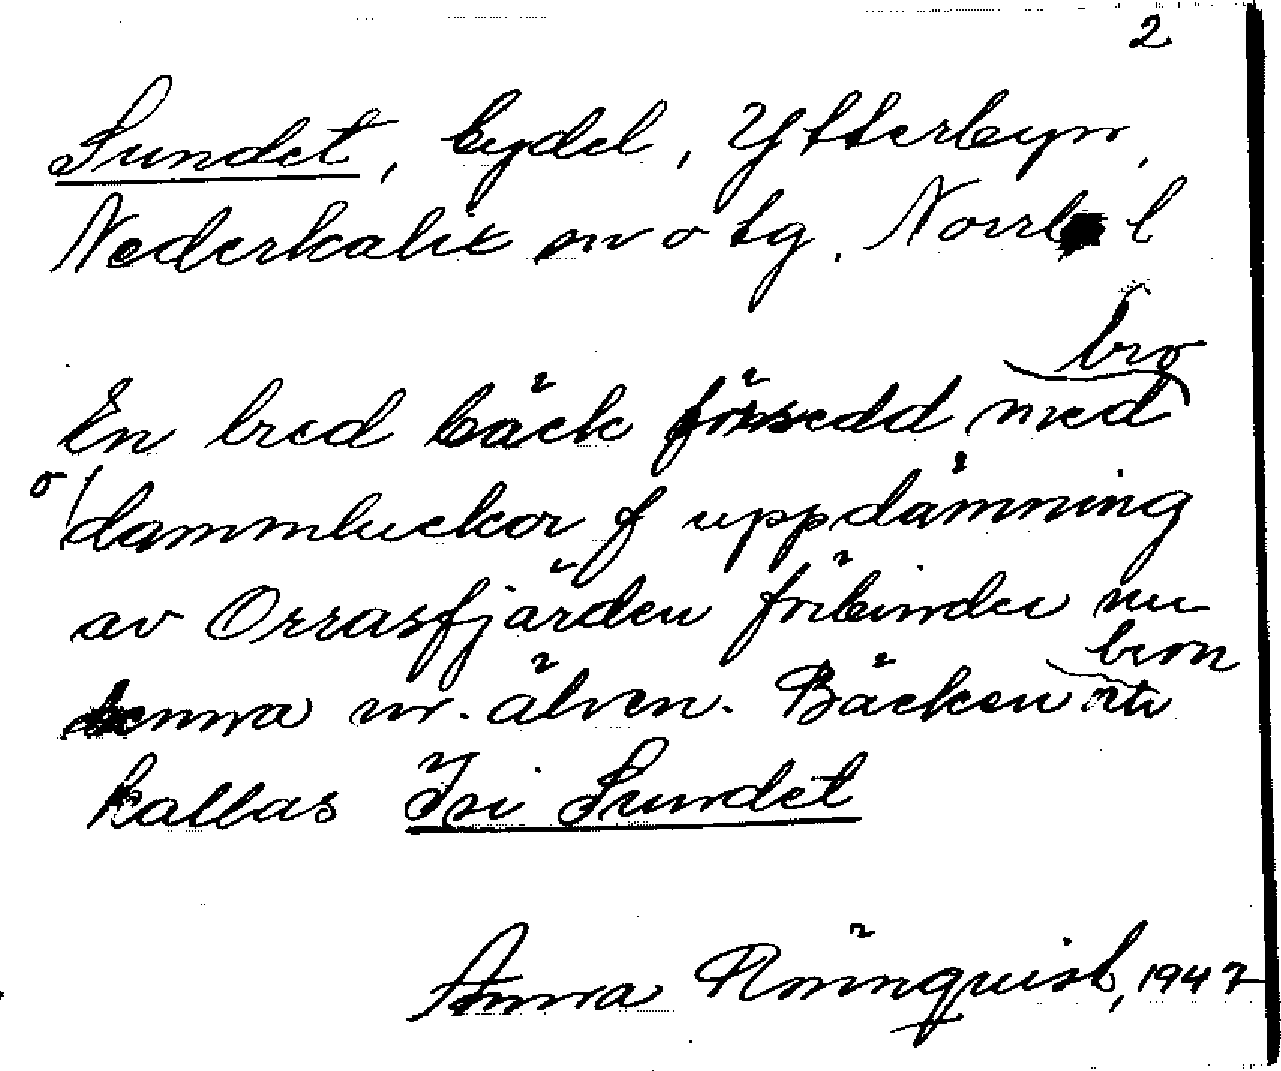 2
Sundet, bydel, Ytterbyn,
Nederkalix sn o tg. Norrb l
bro
En bred bäck försedd med
o dammluckor f uppdämning
av Orrasfjärden förbinder nu
bron
denna m. älven. Bäcken
kallas Isi Sundet
Anna Rönnquist, 1947